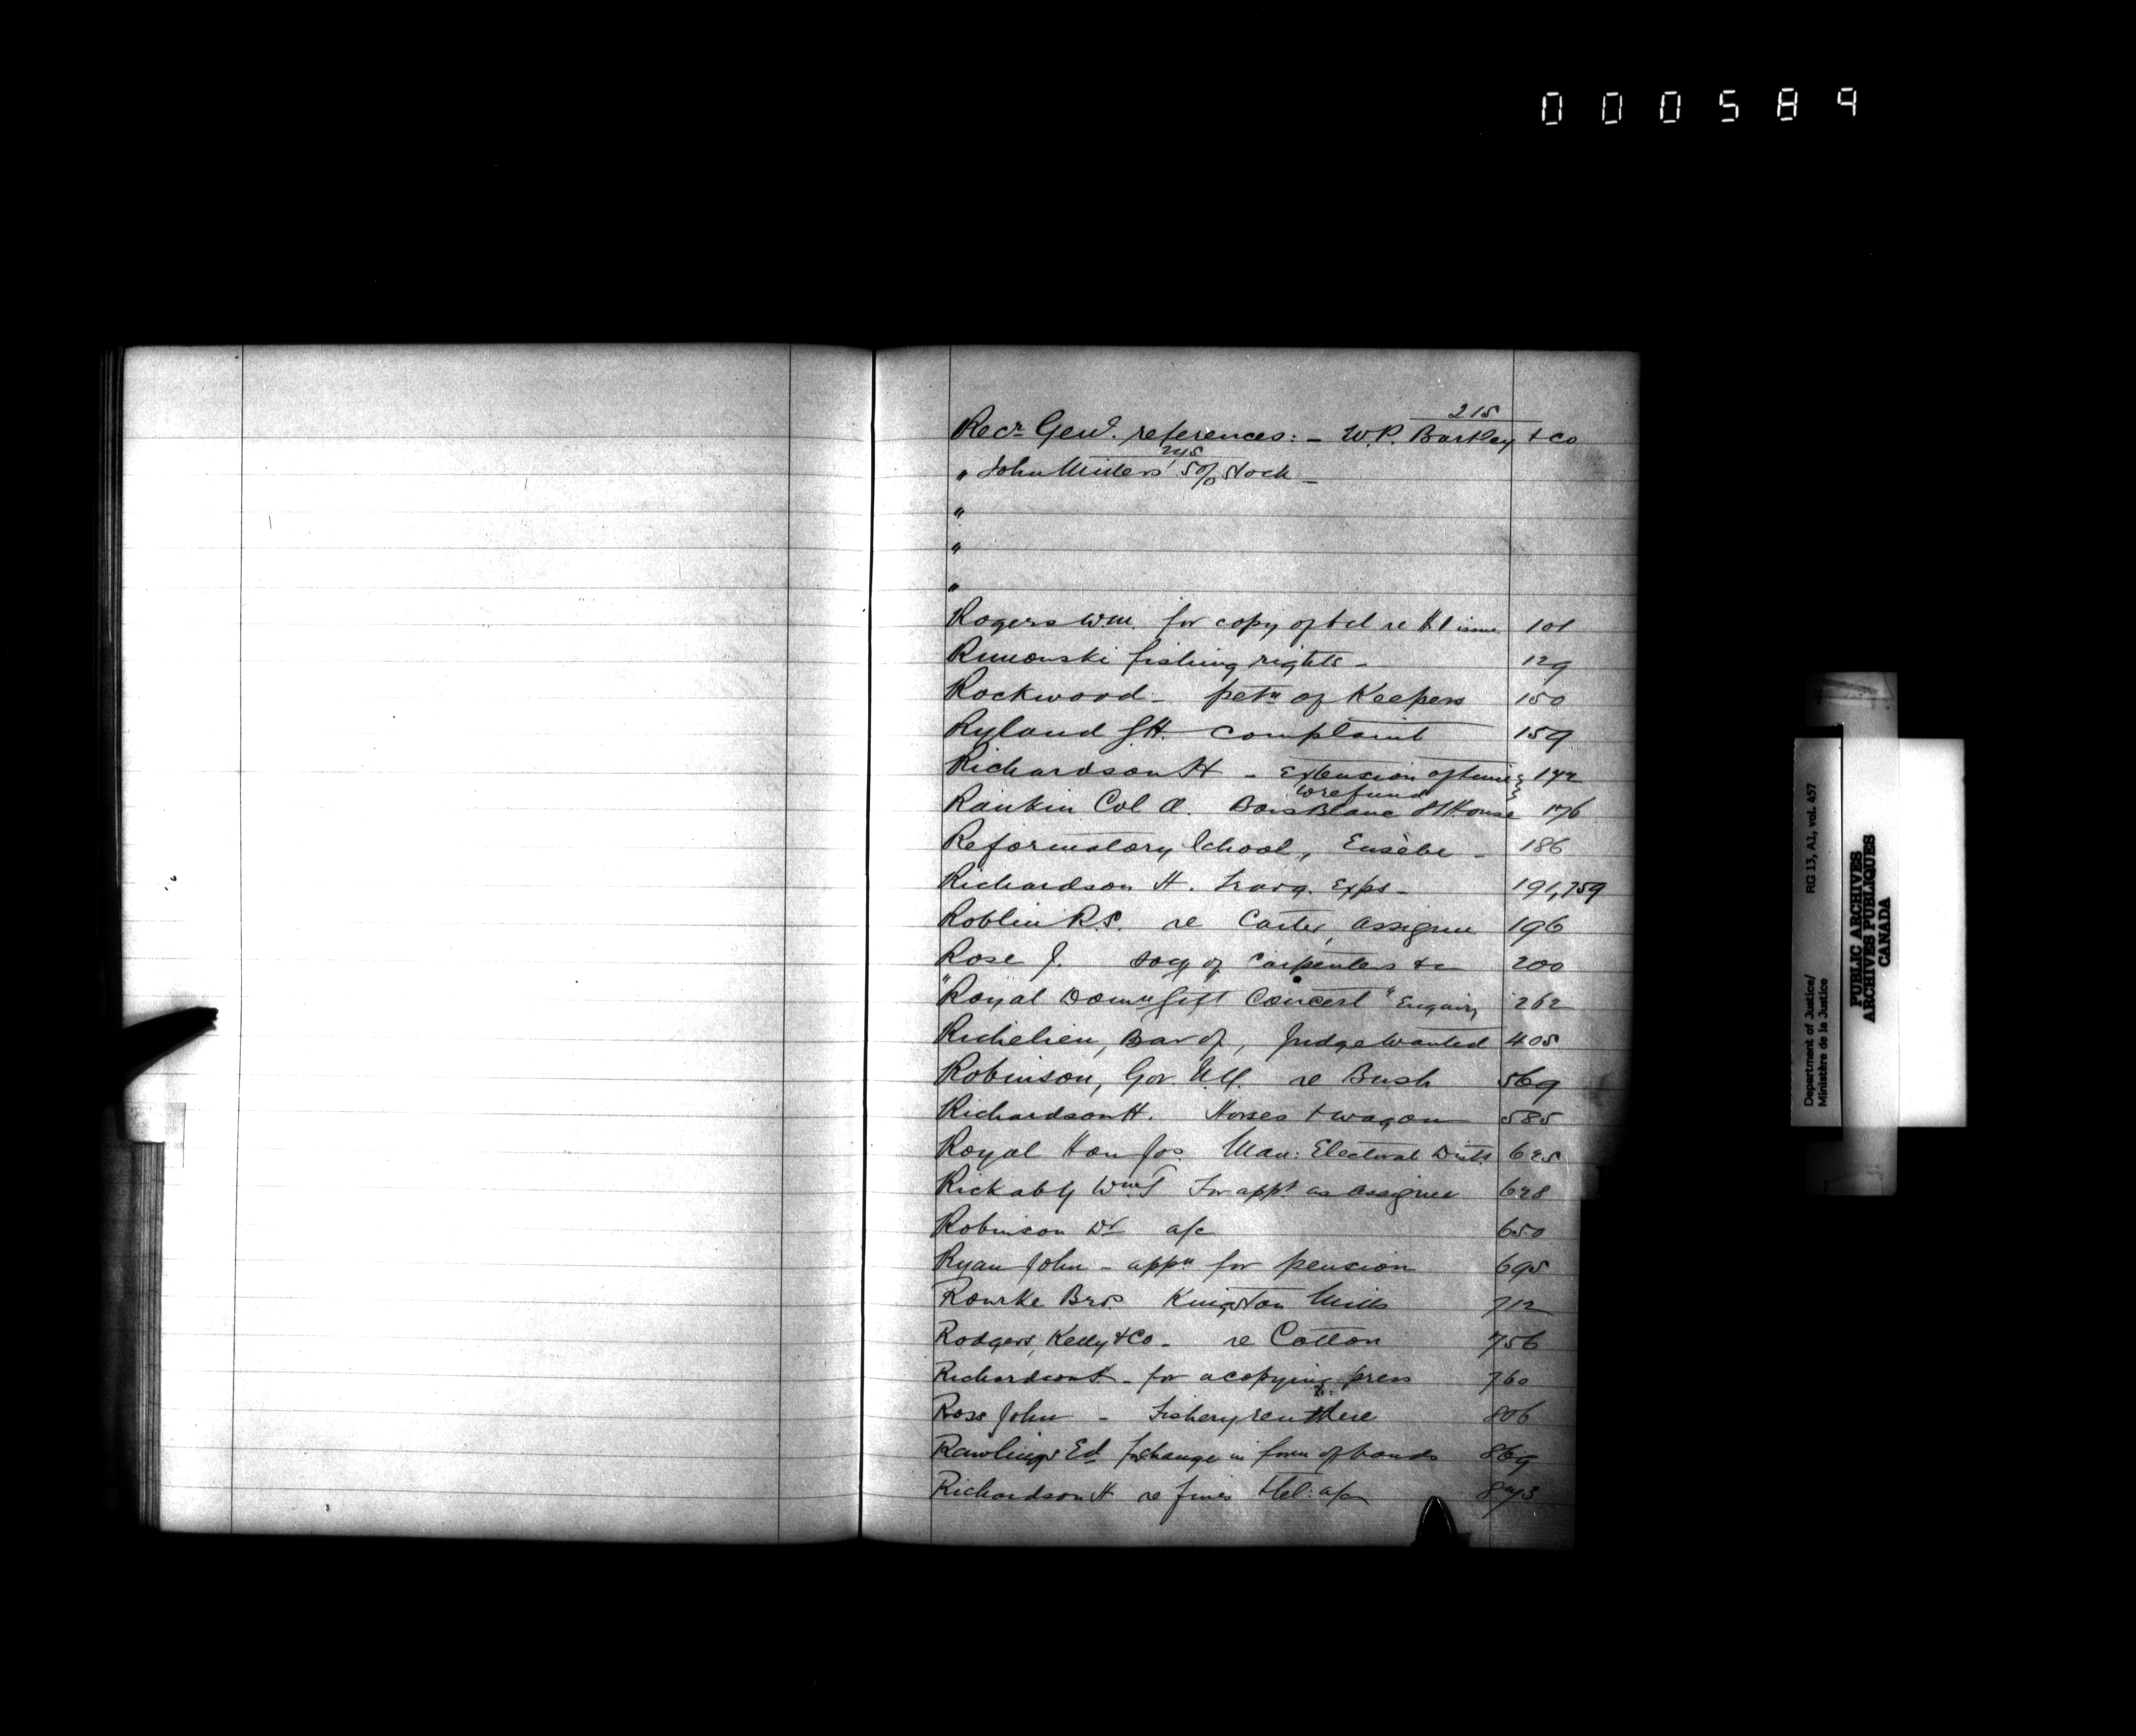 000589
215
Recr Genl. references: - W.P. Bartley & Co
245
" John Millers' 5% Stock -
"
"
"
Rogers Wm. for copy of bd re $1 issue 101
Rimouski fishing rights - 129
Rockwood - petn of Keepers 150
Ryland G.H. complaint 159
Richardson H - Extension of time 172
to refund
Rankin Col A. Bois Blanc Lt House 176
Reformatory School, Eusèbe - 186
Richardson H. Travg. Exps - 191,759
Roblin R.S. re Carter, assignee 196
Rose J. Socy of Carpenters &c 200
"Royal Domn Gift Concert" Enquiry 262
Richelieu, Bar of, Judge wanted 405
Robinson, Gov. re Bush 569
Richardson H. Horses & wagon 585
Royal Hon Jos. Man: Electoral Dists 625
Rickaby Wm T For appt as Assignee 628
Robinson Dr a/c 650
Ryan John - appn for pension 695
Rourke Bros. Kingston Mills 712
Rodgers, Kelly & Co - re Cotton 756
Richardson H - for a copying press 760
Ross John - Fishery 806
Rawlings Ed for change in form of bonds 869
Richardson H re fines & tel: a/cs 873
Department of Justice/ RG 13, A1, vol. 457
Ministère de la Justice
PUBLIC ARCHIVES
ARCHIVES PUBLIQUES
CANADA